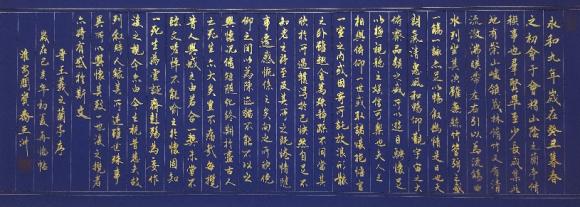 永和九年歲在癸丑暮春
之初會于會稽山陰之蘭亭脩
禊事也羣賢畢至少長咸集此
地有崇山峻領茂林脩竹又有清
流激湍暎帶左右引以爲流觴曲
水列坐其次雖無絲竹管弦之盛
一觴一詠亦足以暢敘幽情是日也天
朗氣清惠風和暢仰觀宇宙之大
俯察品類之盛所以遊目騁懷足
以極視聽之娛信可樂也夫人之
相與俯仰一世或取諸懷抱悟言
一室之內或因寄所託放浪形骸
之外雖趣舍萬殊靜躁不同當其
欣於所遇蹔得於己快然自足不
知老之將至及其所之既惓情隨
事遷感慨係之矣向之所欣俛
仰之間以爲陳迹猶不能不以之
興懷況脩短隨化終期於盡古人
云死生亦大矣豈不痛哉每攬
昔人興感之由若合一契未嘗不
臨文嗟悼不能喻之於懷固知
一死生爲虛誕齊彭殤爲妄作
後之視今亦由今之視昔悲夫故
列敘時人錄其所述雖世殊事
異所以興懷其致一也後之攬者
亦將有感於斯文
晉王羲之蘭亭序
歲在己亥年初夏臨帖
齋亞洲